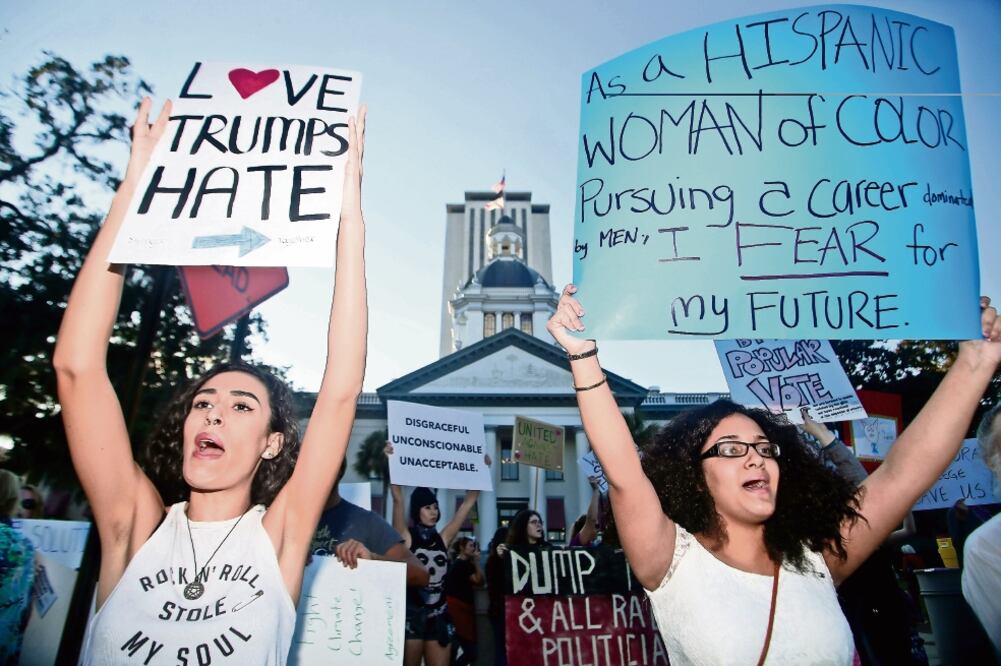 LOVE
TRUMPS
HATE
As a HISPANIC
WOMAN of COLOR
Pursuing a career dominated
by MEN, I FEAR for
my FUTURE.
POPULAR
VOTE
DISGRACEFUL
UNCONSCIONABLE
UNACCEPTABLE.
UNITED
AGAINST
HATE
ROCK N' ROLL
STOLE
MY SOUL
DUMP
& ALL RA
POLITICIA
Fight
Climate
Change!
Agreement
VE US